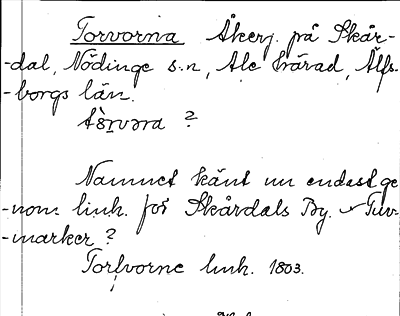 Torvorna Åkerj. på Skår-
-dal, Nödinge s:n, Ale härad, Älfs-
-borgs län.
?
Namnet känt nu endast ge-
-nom linh. för Skårdals By.
-marker?
Torfvorne linh. 1803.